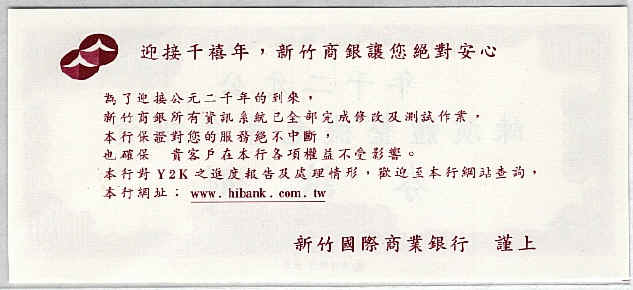 迎接千禧年，新竹商銀讓您絕對安心
為了迎接公元二千年的到來，
新竹商銀所有資訊系統已全部完成修改及測試作業，
本行保證對您的服務絕不中斷，
也確保　貴客戶在本行各項權益不受影響。
本行對 Y2K 之進度報告及處理情形，歡迎至本行網站查詢，
本行網址：www.hibank.com.tw
新竹國際商業銀行　謹上